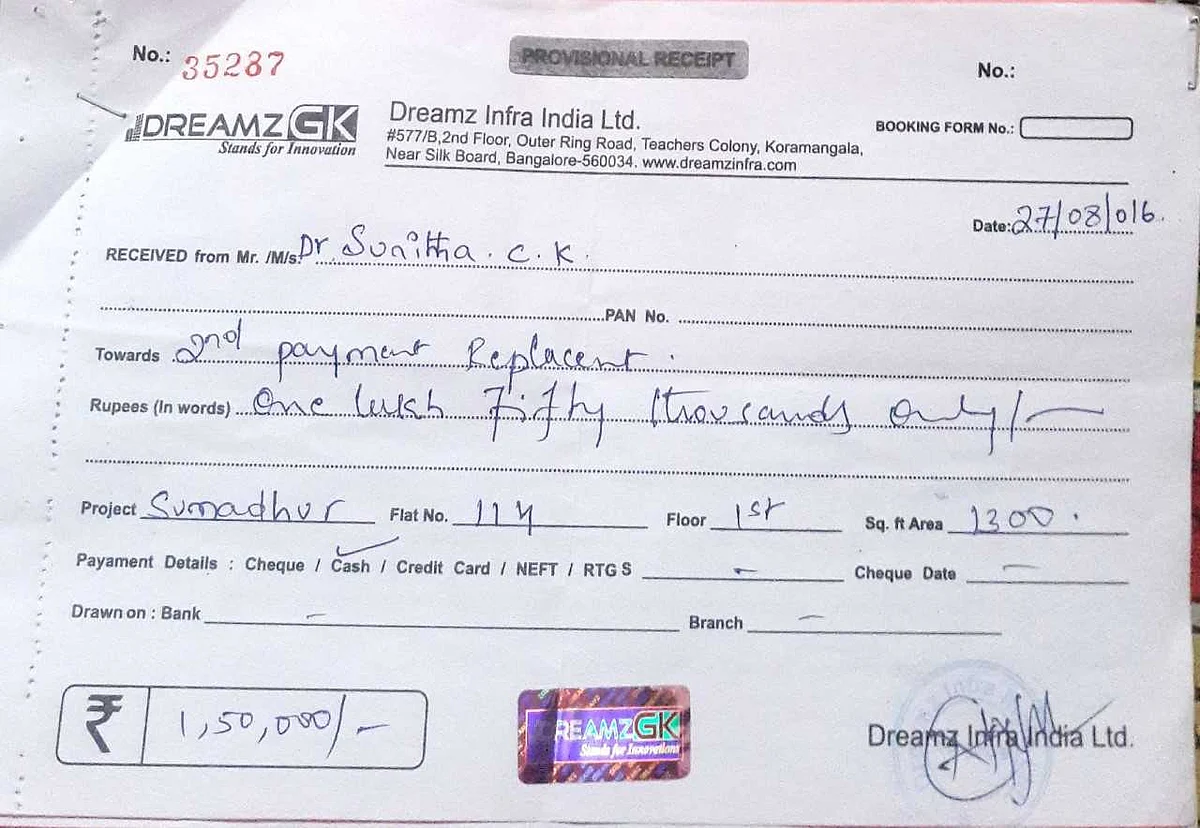 No.: 35287
PROVISIONAL RECEIPT
No.:
DREAMZ GK
Stands for Innovation
Dreamz Infra India Ltd.
#577/B,2nd Floor, Outer Ring Road, Teachers Colony, Koramangala,
Near Silk Board, Bangalore-560034. www.dreamzinfra.com
BOOKING FORM No.:
Date: 27/08/016.
RECEIVED from Mr. /M/s. Dr Sunitha . C . K .
PAN No.
Towards 2nd payment Replacent .
Rupees (In words) One lakh Fifty thousands only/—
Project Sumadhur Flat No. 114 Floor 1st Sq. ft Area 1300 .
Payament Details : Cheque / Cash / Credit Card / NEFT / RTG S - Cheque Date -
Drawn on : Bank - Branch -
₹ 1,50,000/-
DREAMZ GK
Stands for Innovations
Dreamz Infra India Ltd.